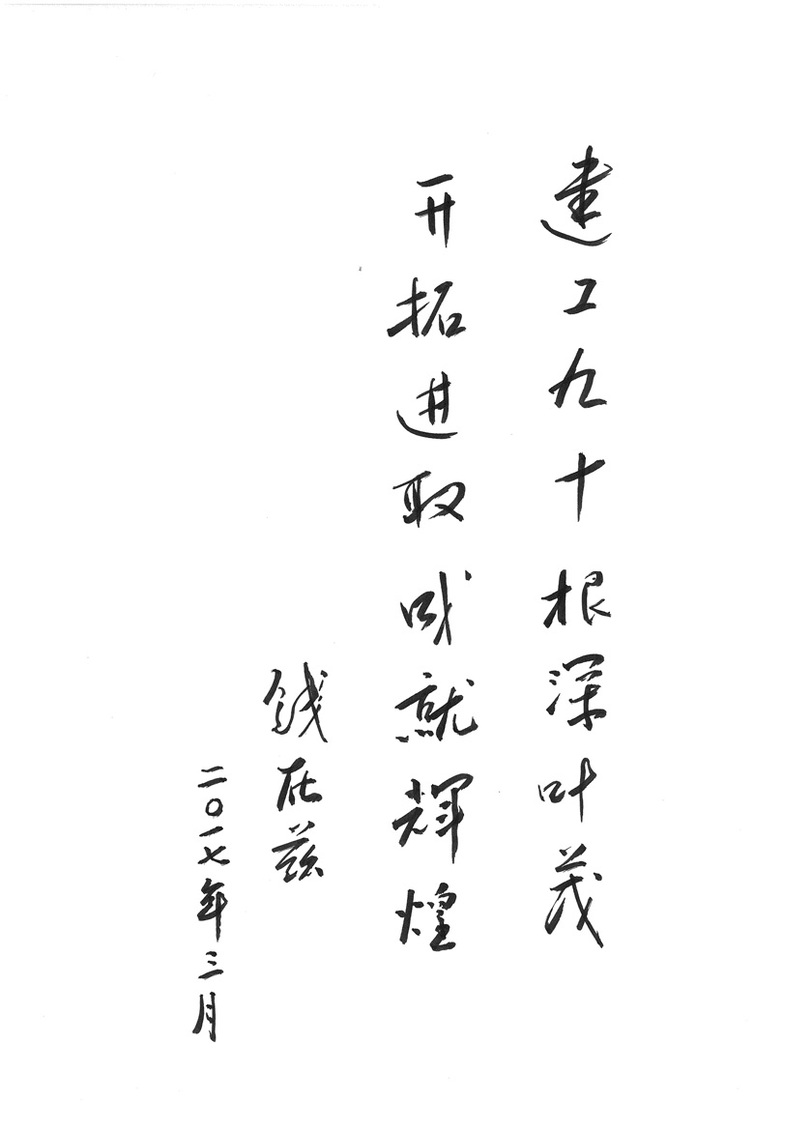 建工九十根深叶茂
开拓进取成就辉煌
钱在兹
二〇一七年三月